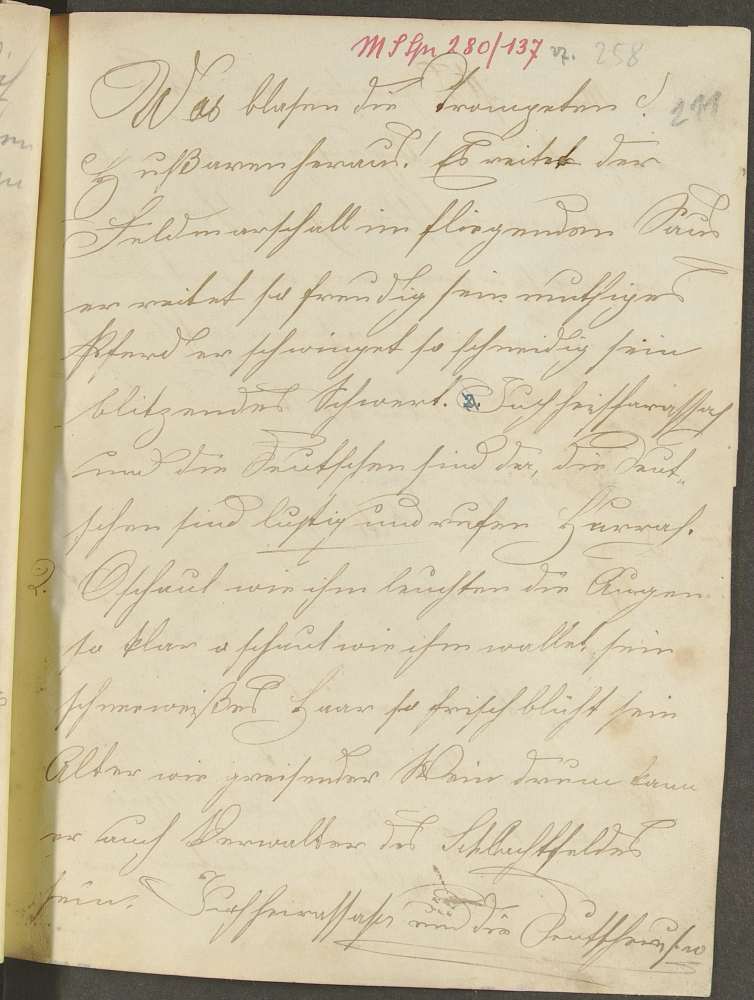 MSSgn 280/137 vz. 258
Was blasen die Trompeten? 211
Hußaren heraus! Es reitet der
Feldmarschall im fliegenden Saus
er reitet so freudig sein muthiges
Pferd er schwinget so schneidig sein
blitzendes Schwert. Juchheissarassah
und die Deutschen sind da, die Deut-
schen sind lustig und rufen Hurrah.
2. O schaut wie ihm leuchten die Augen
so klar o schaut wie ihm wallet sein
schneeweißes Haar so frisch blüht sein
Alter wie greisender Wein drum kann
er auch Verwalter des Schlachtfeldes
sein. Juchheirassasa und die Deutschen